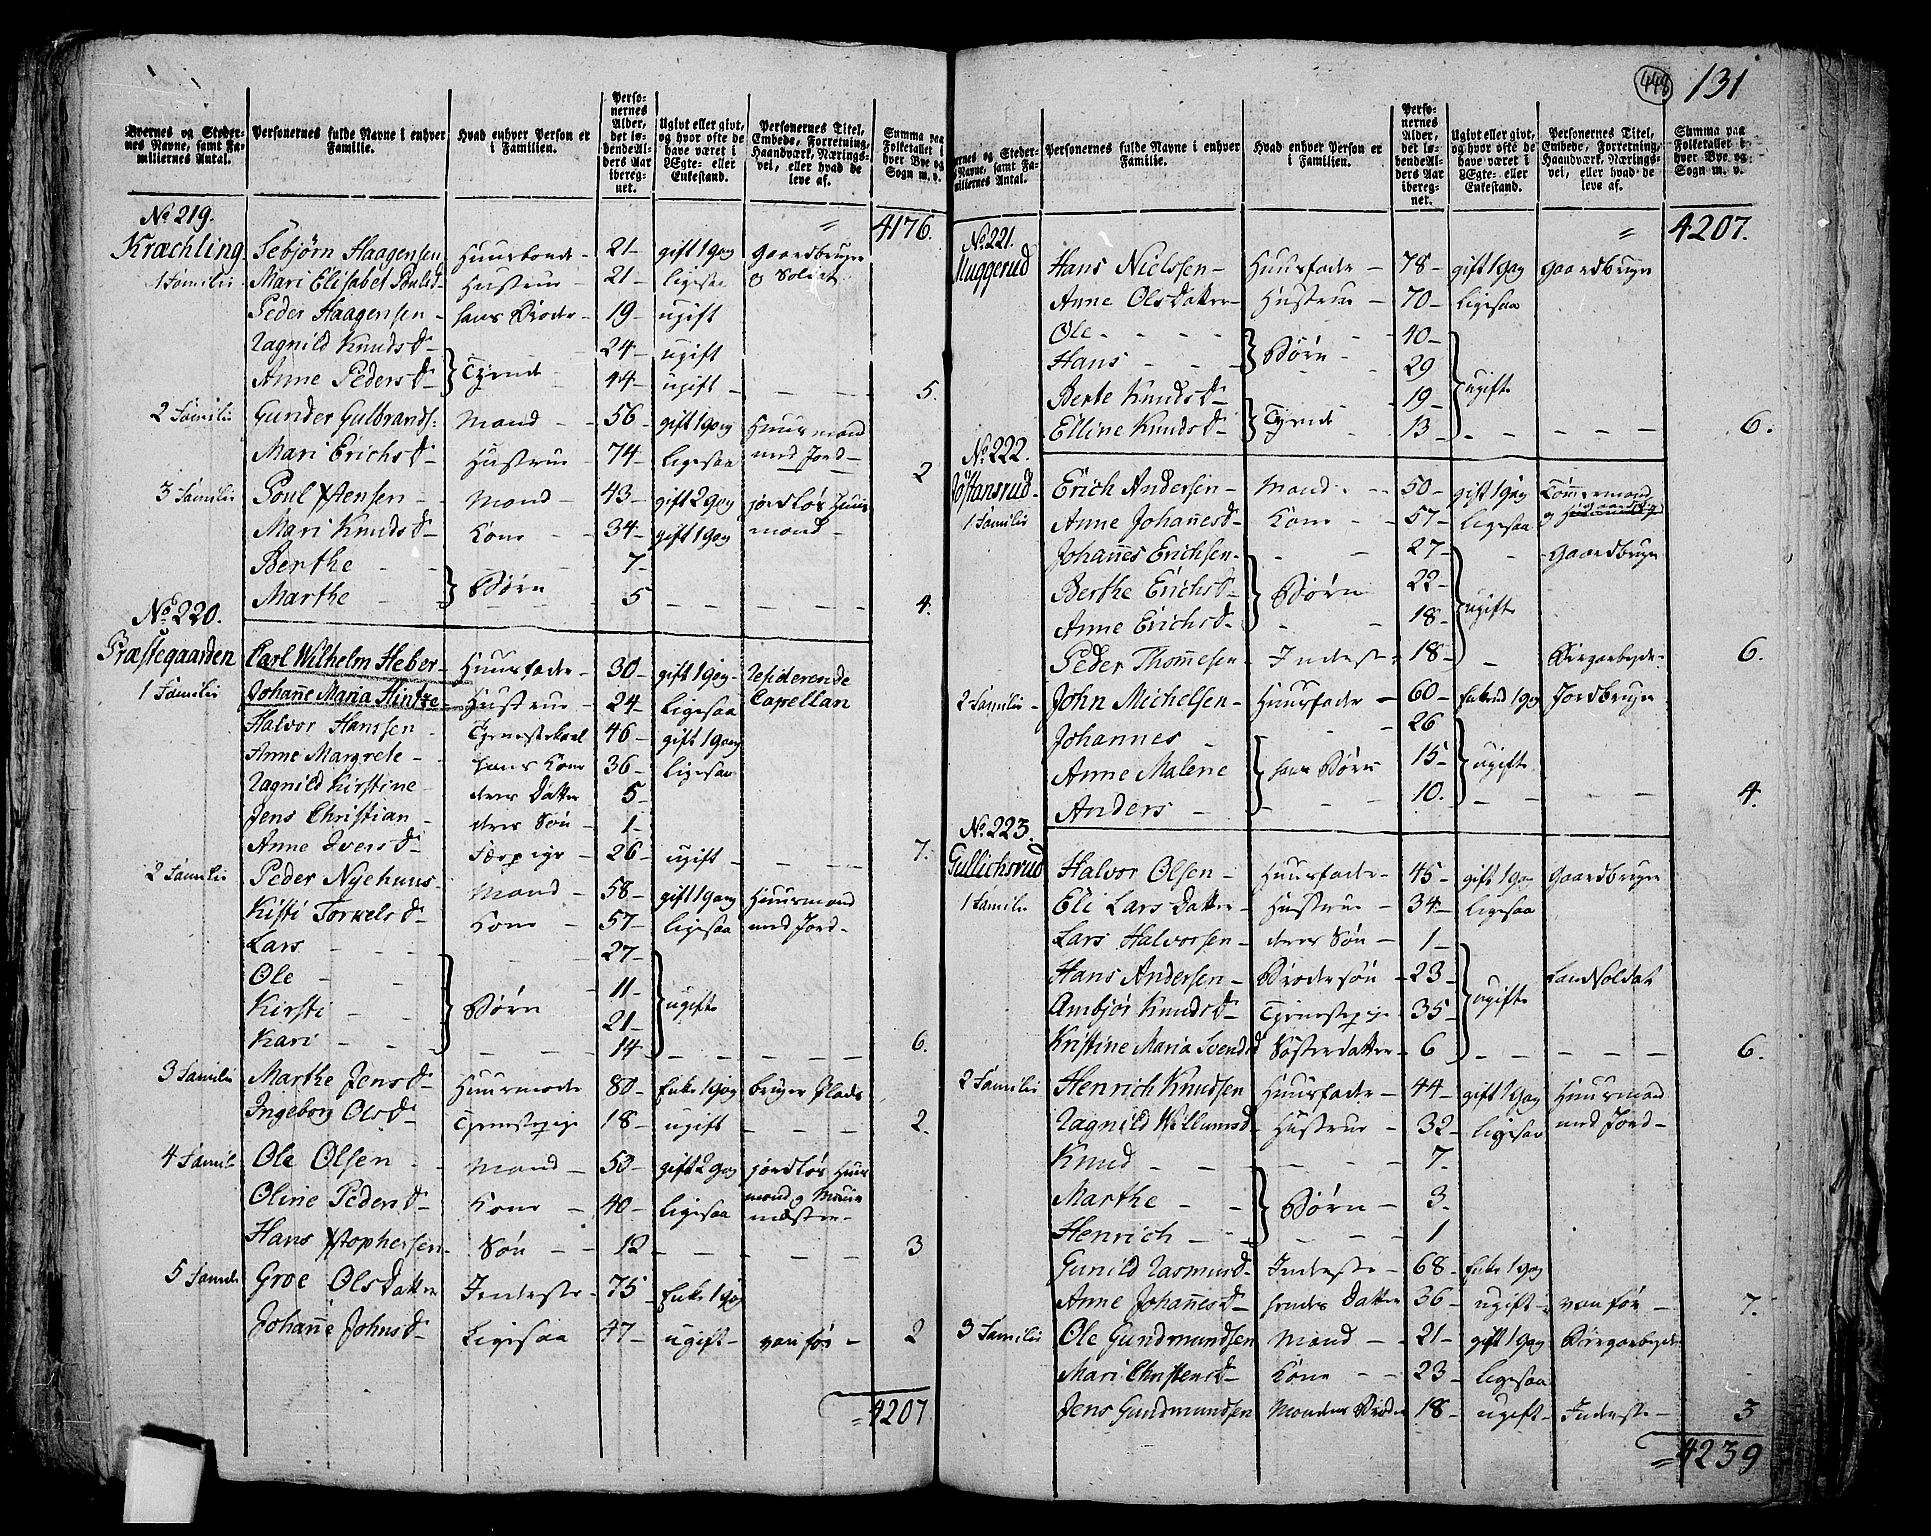 Byernes og Steder-
nes Navne, samt Fa-
miliernes Antal.
Personernes fulde Navne i enhver
Familie.
Hvad enhver Person er
i Familien.
Perso-
nernes
Alder,
det lø-
bende Al-
ders Aar
ibereg-
net.
Ugivt eller givt,
og hvor ofte de
have været i
Ægte- eller
Enkestand.
Personernes Titel,
Embede, Forretning,
Haandværk, Nærings-
vei, eller hvad de
leve af.
Summa paa
Folketallet i
hver Bye og
Sogn m. v.
No 219. = 4176.
Kræchling Sebjørn Haagensen Huusbonde - 21 - gift 1 gang Gaardbruger
1 Familie Mari Elisabet Pouls D- Hustrue - 21 - ligesaa og Soldat
Peder Haagensen - hans Broder - 19 - ugift
Ragnild Knuds D- 24 - ugift
Anne Peders D- } Tyende 44 - ugift - 5.
2 Familie Gunder Gulbrands: Mand - 56 - gift 1 gang Huusmand
Mari Erichs D- Hustrue - 74 - ligesaa med Jord - 2
3 Familie Poul Xstensen - Mand - 43 - gift 2 gang jordløs Huus
Mari Knuds D- Kone - 34 - gift 1 gang mand -
Berthe - 7 -
Marthe } Børn 5 - 4.
No 220.
Præstegaarden Carl Wilhelm Heber - Huusfader - 30 - gift 1 gang - Residerende
1 Familie Johanne Maria Hintze - Hustrue - 24 - ligesaa Capellan
Halvor Hanssen - Tjenestekarl 46 - gift 1 gang
Anne Margrete - hans Kone 36 - ligesaa
Ragnild Kirstine - deres Datter 5 -
Jens Christian - deres Søn - 1 -
Anne Ivers D- 26 - ugift - 7.
2 Familie Peder Nyehuus - Mand - 58 - gift 1 gang Huusmand
Kisti Torkels D- Kone - 57 - ligesaa med Jord -
Lars - 27 -
Ole - 11 -
Kirsti } Børn 21 - } ugifte
Kari - 14 - 6.
3 Familie Marthe Jens D- Huusmoder 80 - Enke 1 gang bruger Plads
Ingeborg Ols D- Tjenestepige 18 - ugift - 2.
4 Famili Ole Olsen - Mand - 50 - gift 2 gang jordløs Huus
Oline Peders D- Kone - 40 - ligesaa mand og Muur
mæster -
Hans Xstophersen - Søn - 12 - 3
5 Famili Groe Ols Datter Inderste - 75 - Enke 1 gang
Johanne Johns D- Ligesaa 47 - ugift - vanfør - 2
= 4207
448 131
Byernes og Steder-
nes Navne, samt Fa-
miliernes Antal.
Personernes fulde Navne i enhver
Familie.
Hvad enhver Person er
i Familien.
Perso-
nernes
Alder,
det lø-
bende Al-
ders Aar
ibereg-
net.
Ugivt eller givt,
og hvor ofte de
have været i
Ægte- eller
Enkestand.
Personernes Titel,
Embede, Forretning,
Haandværk, Nærings-
vei, eller hvad de
leve af.
Summa paa
Folketallet i
hver Bye og
Sogn m. v.
No 221. = 4207.
Muggerud Hans Nielssen - Huusfader - 78 - gift 1 gang Gaardbruger
Anne Ols Datter - Hustrue - 70 - ligesaa
Ole - 40 -
Hans - } Børn - 29
Berte Knuds D- 19 - } ugifte
Elline Knuds D- } Tyende 13 - 6.
No 222.
Jøstansrud - Erich Andersen - Mand - 50 - gift 1 gang Tømmermand
1 Familie Anne Johannes D- Kone - 57 - ligesaa
Johannes Erichsen - 27 - Gaardbruger
Berthe Erichs D- } Børn 22 - } ugifte
Anne Erichs D- 18 -
Peder Thommesen - Inderste - 18 - Bergarbeyder - 6.
2 Familie - John Michelsen - Huusfader - 60 - Enkemd 1 gang Jordbruger
Johannes - 26
Anne Malene } hans Børn 15 - } ugifte
Anders - 10. 4.
No 223.
Gullichsrud Halvor Olsen - Huusfader - 45 - gift 1 gang Gaardbruger
1 Familie Eli Lars Datter - Hustrue - 34 - ligesaa
Lars Halvorsen - deres Søn - 1 -
Hans Andersen - Brodersøn - 23 - } ugifte Land Soldat
Ambjør Knuds D- Tjenestepige 35 -
Kristine Maria Svends D Søsterdatter - 6 - 6.
2 Familie Henrich Knudsen Huusfader - 44 - gift 1 gang Huusmand
Ragnild Willumsd - Hustrue - 32 - ligesaa med Jord -
Knud - 7.
Marthe - } Børn - 3.
Henrich - 1
Gunild Rasmusd - Inderste - 68 - Enke 1 gang
Anne Johannes D- hendes Datter 36 - ugift - vanfør - 7.
3 Familie Ole Gundmundsen Mand - 21 - gift 1 gang Bergarbeyder
Mari Christens D- Kone - 23 - ligesaa
Jens Gundmundsen Mandens Broder 18 - ugift - Inderste - 3
= 4239